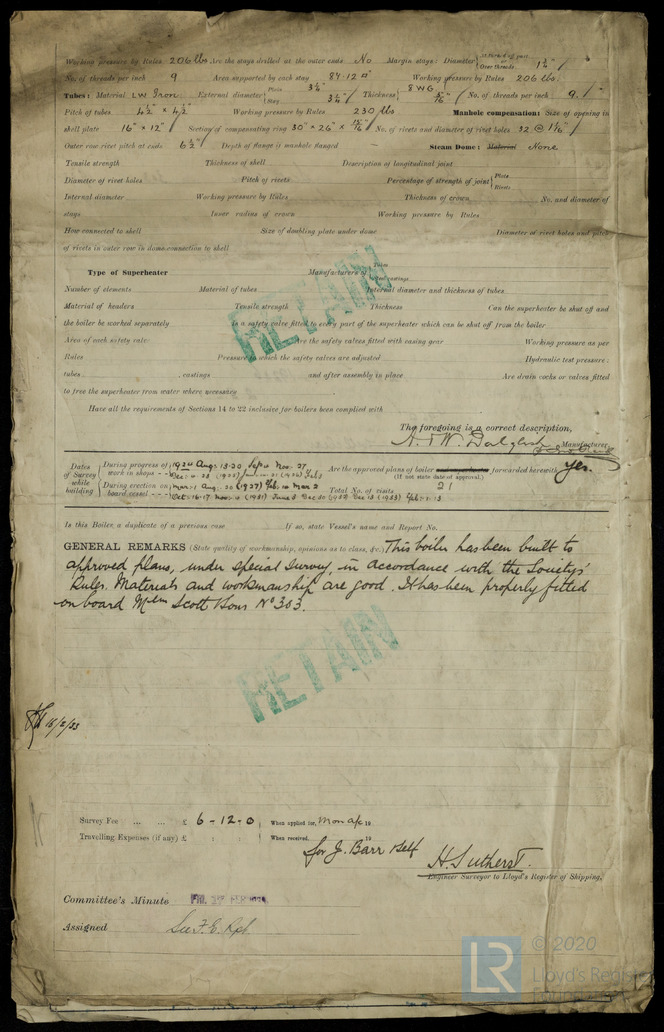 Working pressure by Rules 206 lbs Are the stays drilled at the outer ends No Margin stays: Diameter { At turned off part or Over threads 1¾"
No. of threads per inch 9 Area supported by each stay 84.12 □" Working pressure by Rules 206 lbs.
Tubes: Material LW Iron External diameter { Plain 3¼" Stay 3¼" Thickness { 8 WG 5/16" No. of threads per inch 9.
Pitch of tubes 4½" × 4½" Working pressure by Rules 230 lbs Manhole compensation: Size of opening in
shell plate 16" × 12" Section of compensating ring 30" × 26" × 15/16" No. of rivets and diameter of rivet holes 32 @ 1 1/16"
Outer row rivet pitch at ends 6½" Depth of flange if manhole flanged — Steam Dome: Material None
Tensile strength Thickness of shell Description of longitudinal joint
Diameter of rivet holes Pitch of rivets Percentage of strength of joint { Plate Rivets
Internal diameter Working pressure by Rules Thickness of crown No. and diameter of
stays Inner radius of crown Working pressure by Rules
How connected to shell Size of doubling plate under dome Diameter of rivet holes and pitch
of rivets in outer row in dome connection to shell
Type of Superheater Manufacturers of { Tubes Steel castings
Number of elements Material of tubes Internal diameter and thickness of tubes
Material of headers Tensile strength Thickness Can the superheater be shut off and
the boiler be worked separately Is a safety valve fitted to every part of the superheater which can be shut off from the boiler
Area of each safety valve Are the safety valves fitted with easing gear Working pressure as per
Rules Pressure to which the safety valves are adjusted Hydraulic test pressure:
tubes , castings and after assembly in place Are drain cocks or valves fitted
to free the superheater from water where necessary
RETAIN
Have all the requirements of Sections 14 to 22 inclusive for boilers been complied with
The foregoing is a correct description,
A. & W. Dalglish Manufacturer
Dates of Survey while building
During progress of work in shops - - 1930 Aug. 13.20 Sep. Nov. 27
During erection on board vessel - - -
Are the approved plans of boiler forwarded herewith Yes.
(If not state date of approval.)
Total No. of visits 21
Is this Boiler a duplicate of a previous case If so, state Vessel's name and Report No.
GENERAL REMARKS (State quality of workmanship, opinions as to class, &c. This boiler has been built to
approved plans, under special survey, in accordance with the Societys'
Rules. Materials and workmanship are good. It has been properly fitted
on board Messrs Scott & Sons No 303.
RETAIN
16/2/33
Survey Fee ... ... £ 6 - 12 - 0 When applied for, Mon a/c 19
Travelling Expenses (if any) £ : : When received, 19
for J. Barr & self
H. Sutherst.
Engineer Surveyor to Lloyd's Register of Shipping.
Committee's Minute
Assigned See F.E. Rpt
LR © 2020
Lloyd's Register
Foundation